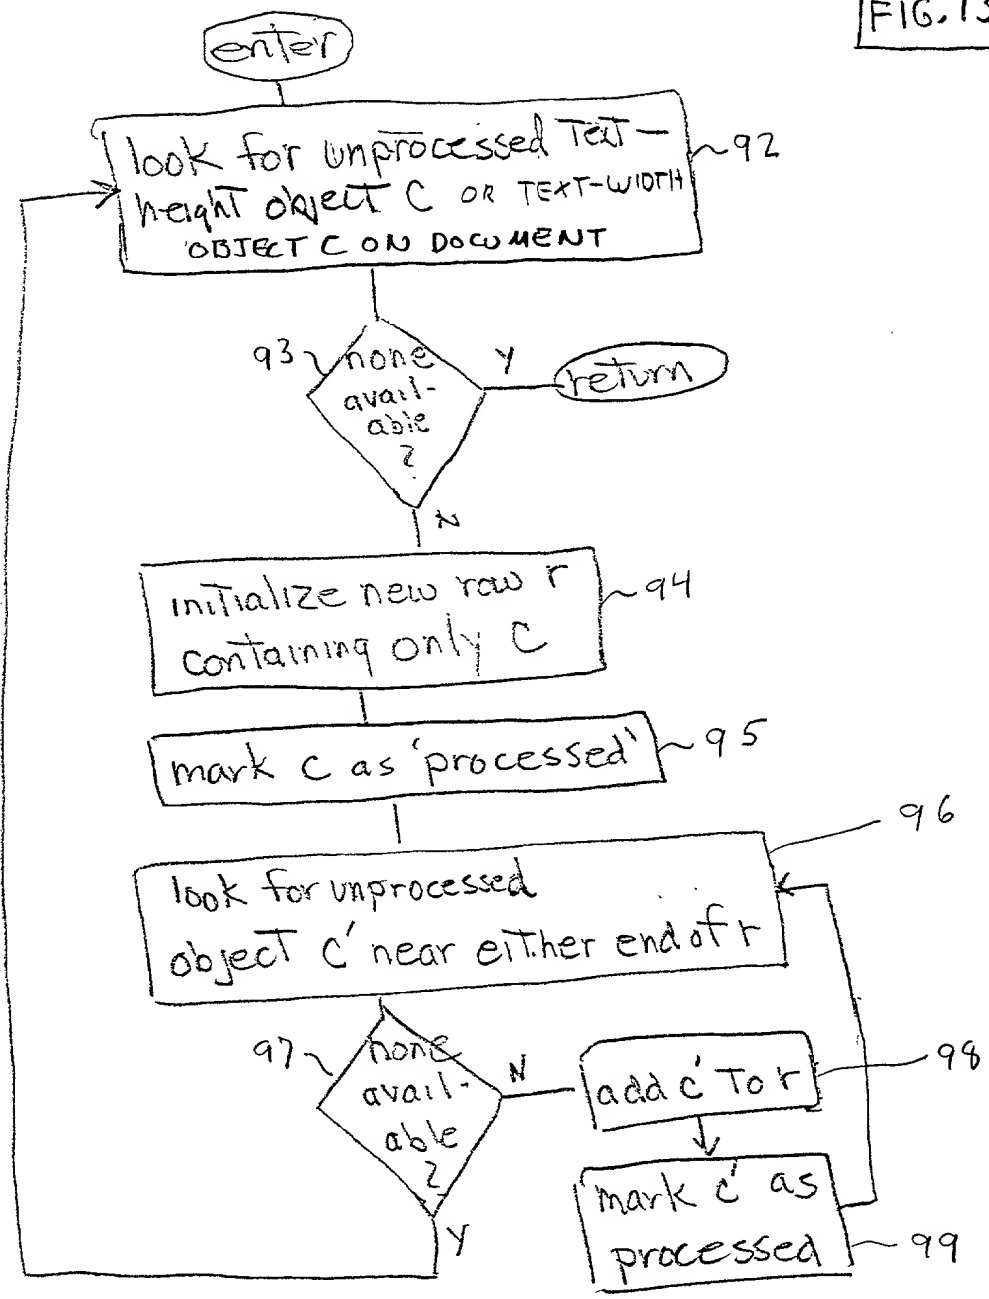 FIG. 13
enter
look for unprocessed Text-
height object C OR TEXT-WIDTH
OBJECT C ON DOCUMENT
92
93
none
avail-
able
?
Y
return
N
initialize new row r
containing only C
94
mark C as 'processed'
95
96
look for unprocessed
object C' near either end of r
97
none
avail-
able
?
N
add c' To r
98
Y
mark c' as
processed
99